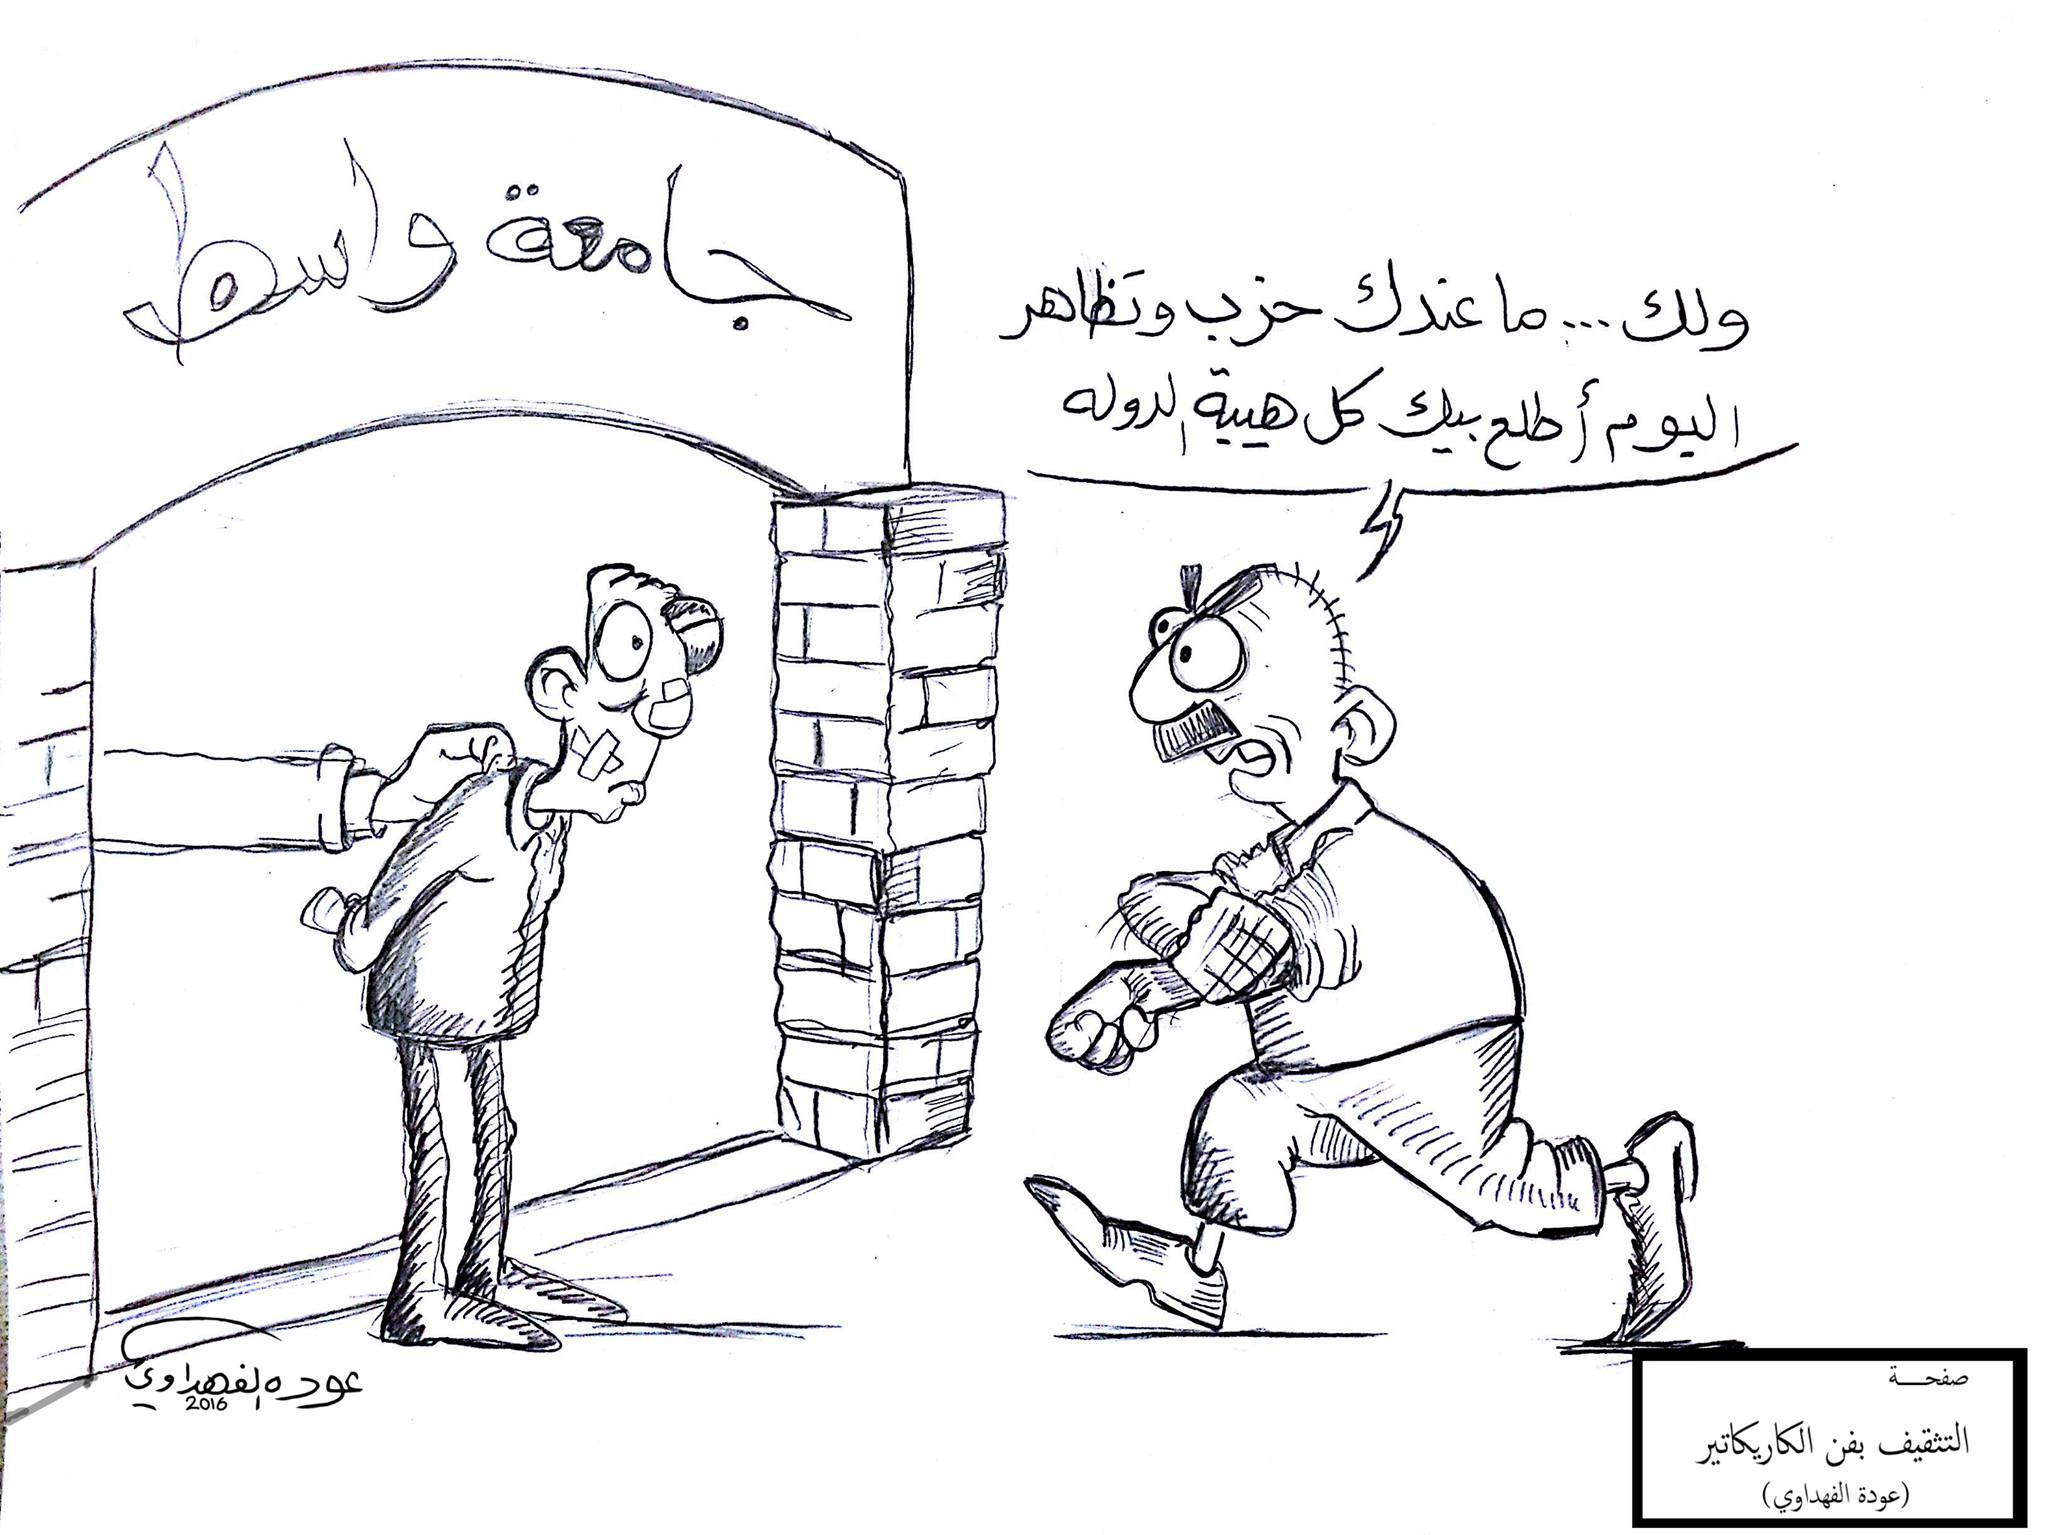 جامعة واسط
ولك... ما عندك حزب وتظاهر
اليوم أطلع بيك كل هيبة الدوله
عوده الفهداوي
2016
صفحـــة
التثقيف بفن الكاريكاتير
(عودة الفهداوي)